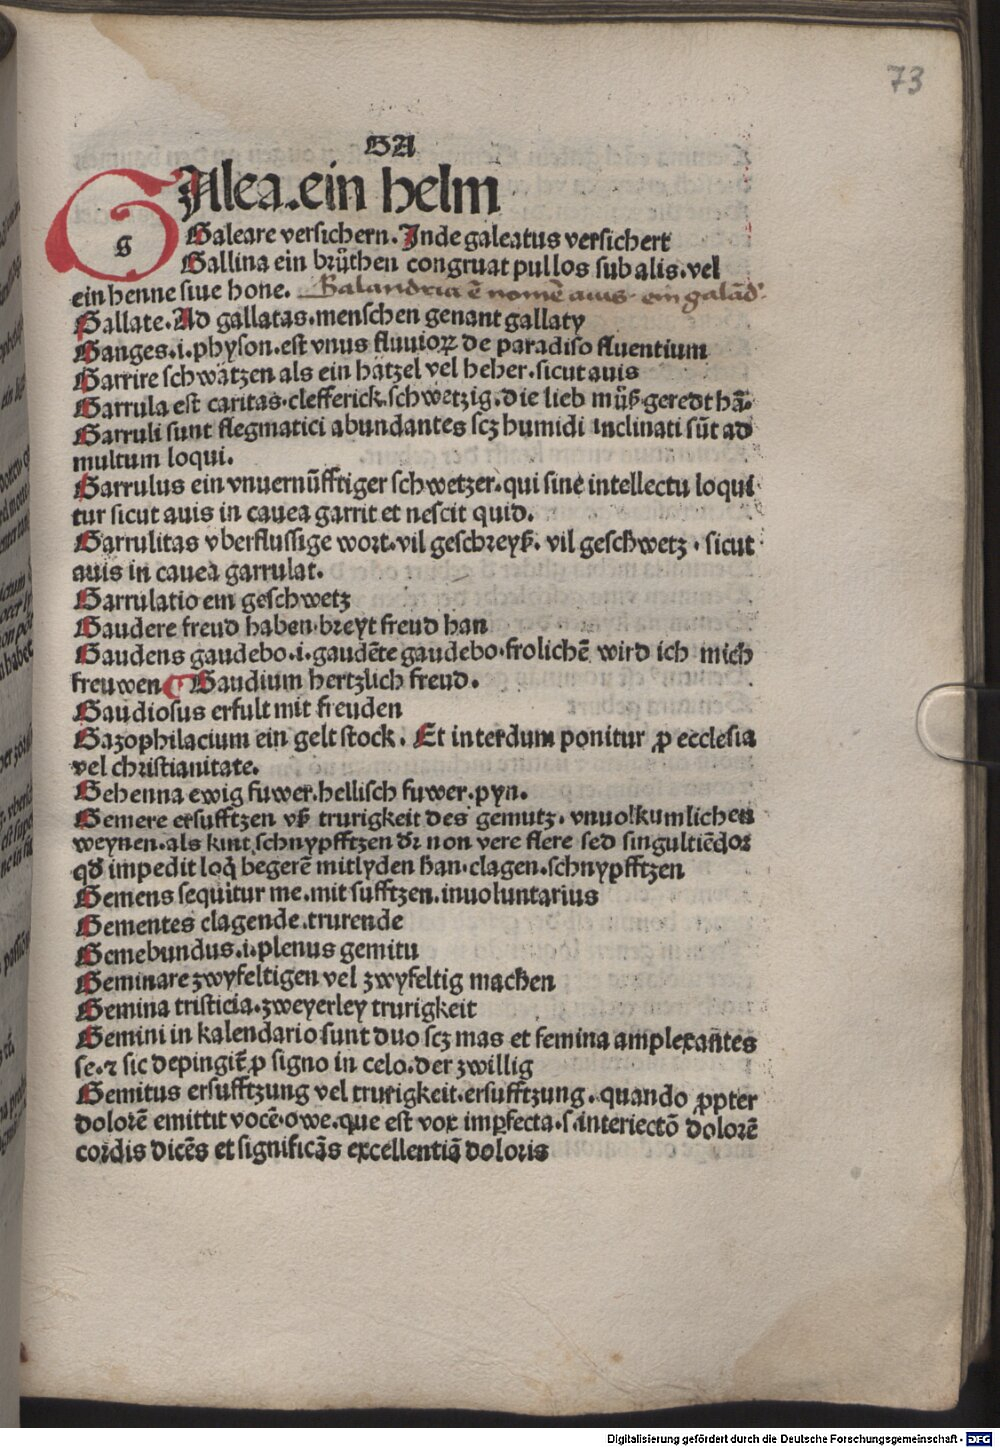 73
GA
GAlea.ein helm
g
Galeare versichern. Inde galeatus versichert
Gallina ein brüthen congruat pullos sub alis.vel
ein henne siue hone. Galandria ē nomē auis. ein galād'
Gallate. Ad gallatas.menschen genant gallaty
Ganges.i.physon.est vnus fluuioꝝ de paradiso fluentium
Garrire schwätzen als ein hätzel vel heher.sicut auis
Garrula est caritas.clefferick.schwetzig.die lieb müß geredt hā.
Garruli sunt flegmatici abundantes scz humidi inclinati sūt ad
multum loqui.
Garrulus ein vnuernūfftiger schwetzer.qui sine intellectu loqui
tur sicut auis in cauea garrit et nescit quid.
Garrulitas vberflussige wort.vil geschreyß. vil geschwetz . sicut
auis in cauea garrulat.
Garrulatio ein geschwetz
Gaudere freud haben.breyt freud han
Gaudens gaudebo.i.gaudēte gaudebo.frolichē wird ich mich
freuwen ¶ Gaudium hertzlich freud.
Gaudiosus erfult mit freuden
Gazophilacium ein gelt stock. Et interdum ponitur ꝓ ecclesia
vel christianitate.
Gehenna ewig fuwer.hellisch fuwer.pyn.
Gemere ersufftzen vß trurigkeit des gemutz. vnuolkumlichen
weynen.als kint schnypfftzen dr̄ non vere flere sed singultiēdo
qd̄ impedit loq̄ begerē mitlyden han.clagen.schnypfftzen
Gemens sequitur me.mit sufftzen.inuoluntarius
Gementes clagende.trurende
Gemebundus.i.plenus gemitu
Geminare zwyfeltigen vel zwyfeltig machen
Gemina tristicia.zweyerley trurigkeit
Gemini in kalendario sunt duo scz mas et femina amplexantes
se.⁊ sic depingit̄ ꝑ signo in celo.der zwillig
Gemitus ersufftzung vel trurigkeit.ersufftzung. quando ꝓpter
dolorē emittit vocē.owe.que est vox imꝑfecta.s.interiectō dolorē
cordis dicēs et significās excellentiā doloris
Digitalisierung gefördert durch die Deutsche Forschungsgemeinschaft - DFG